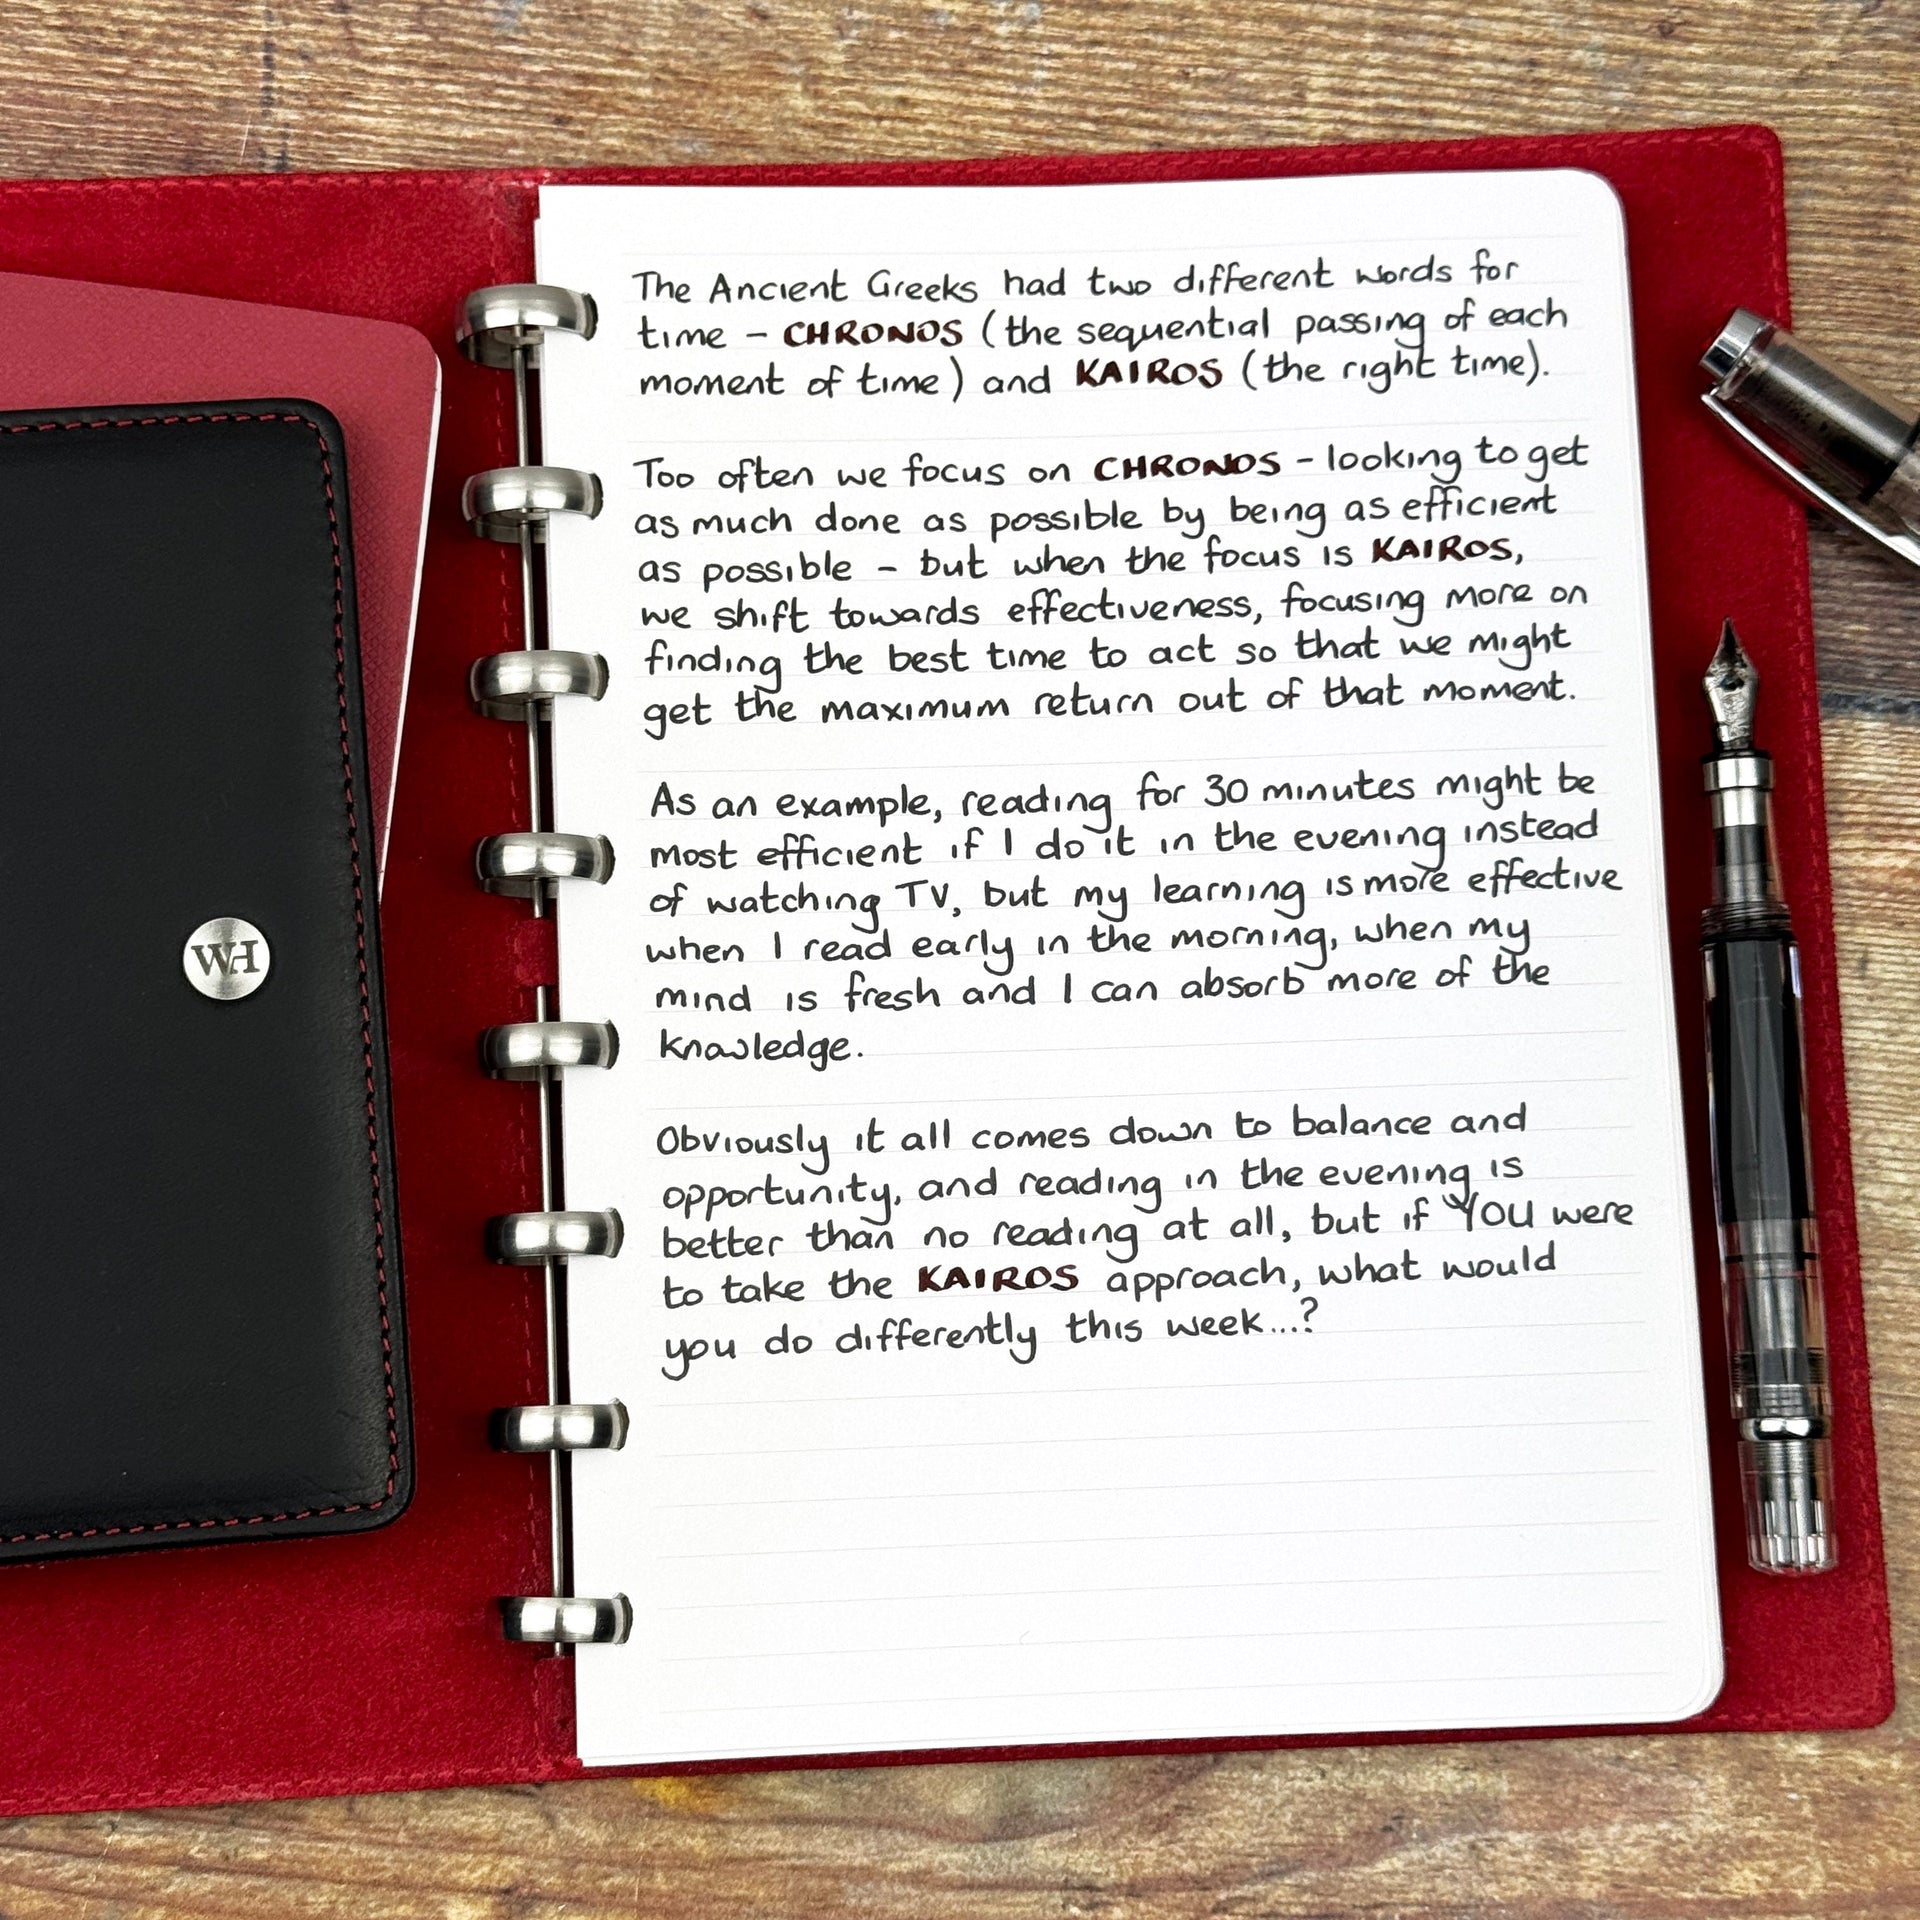 The Ancient Greeks had two different words for
time - CHRONOS (the sequential passing of each
moment of time) and KAIROS (the right time).
Too often we focus on CHRONOS - looking to get
as much done as possible by being as efficient
as possible - but when the focus is KAIROS,
we shift towards effectiveness, focusing more on
finding the best time to act so that we might
get the maximum return out of that moment.
As an example, reading for 30 minutes might be
most efficient if I do it in the evening instead
of watching TV, but my learning is more effective
when I read early in the morning, when my
mind is fresh and I can absorb more of the
knowledge.
Obviously it all comes down to balance and
opportunity, and reading in the evening is
better than no reading at all, but if YOU were
to take the KAIROS approach, what would
you do differently this week...?
WH